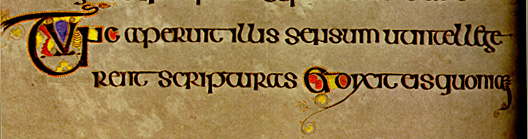 Tunc aperuit illis sensum utintellege
rent scripturas Et dixit eis quoniam